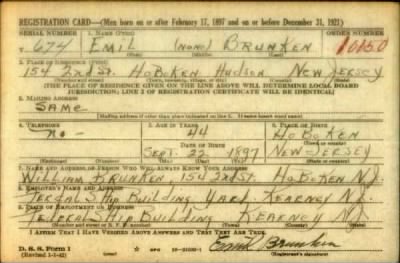 REGISTRATION CARD—(Men born on or after February 17, 1897 and on or before December 31, 1921)
SERIAL NUMBER 1. NAME (Print) ORDER NUMBER
674 EMIL (NONE) BRUNKEN 10150
2. PLACE OF RESIDENCE (Print)
154 2ND ST. HOBOKEN HUDSON NEW JERSEY
(Number and street) (Town, township, village, or city) (County) (State)
[THE PLACE OF RESIDENCE GIVEN ON THE LINE ABOVE WILL DETERMINE LOCAL BOARD
JURISDICTION; LINE 2 OF REGISTRATION CERTIFICATE WILL BE IDENTICAL]
3. MAILING ADDRESS
SAME
[Mailing address if other than place indicated on line 2. If same insert word same]
4. TELEPHONE 5. AGE IN YEARS 6. PLACE OF BIRTH
NO - 44 HOBOKEN
DATE OF BIRTH (Town or county)
SEPT. 22 1897 NEW-JERSEY
(Exchange) (Number) (Mo.) (Day) (Yr.) (State or country)
7. NAME AND ADDRESS OF PERSON WHO WILL ALWAYS KNOW YOUR ADDRESS
WILLIAM BRUNKEN, 154 2ND ST. HOBOKEN N.J.
8. EMPLOYER'S NAME AND ADDRESS
SHIP BUILDING YARD, KEARNEY N.J.
9. PLACE OF EMPLOYMENT OR BUSINESS
FEDERAL SHIP BUILDING KEARNEY N.J.
(Number and street or R. F. D. number) (Town) (County) (State)
I AFFIRM THAT I HAVE VERIFIED ABOVE ANSWERS AND THAT THEY ARE TRUE.
D. S. S. Form 1
(Revised 1-1-42) GPO Emil Brunken